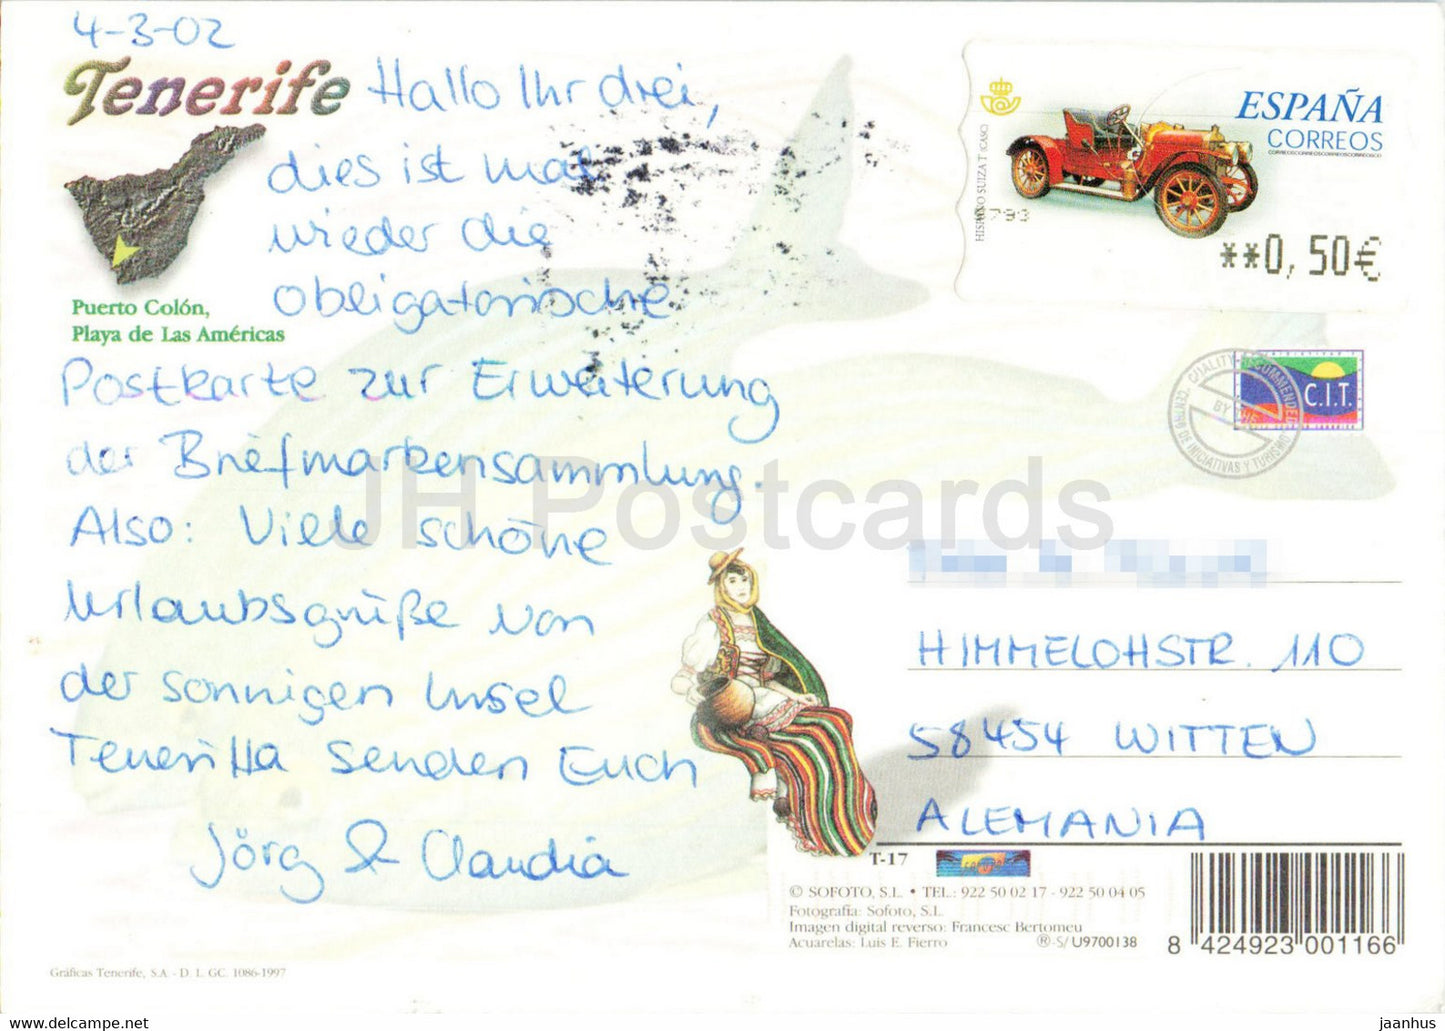 4-3-02
Tenerife
Hallo Ihr drei,
dies ist mal
wieder die
obligatorische
Puerto Colón,
Playa de Las Américas
Postkarte zur Erweiterung
der Briefmarkensammlung.
Also: Viele schöne
Urlaubsgrüße von
der sonnigen Insel
Teneriffa senden Euch
Jörg & Claudia
ESPAÑA
CORREOS
HISPANO SUIZA
**0,50€
QUALITY RECOMMENDED
BY THE
CENTRO DE INICIATIVAS Y TURISMO
C.I.T.
JH Postcards
HIMMELOHSTR. 110
58454 WITTEN
ALEMANIA
T-17
© SOFOTO, S.L. • TEL.: 922 50 02 17 - 922 50 04 05
Fotografía: Sofoto, S.L.
Imagen digital reverso: Francesc Bertomeu
Acuarelas: Luis E. Fierro
®-S/U9700138
8 424923 001166
Gráficas Tenerife, S.A. - D. L. GC. 1086-1997
https://www.delcampe.net
jaanhus